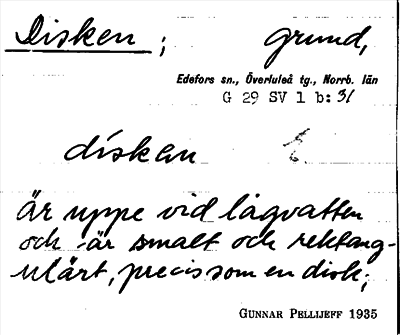 Disken; grund,
Edefors sn., Överluleå tg., Norrb. län
G 29 SV 1 b: 31
dísken
är uppe vid lågvatten
och är smalt och rektang-
ulärt, precis som en disk;
GUNNAR PELLIJEFF 1935